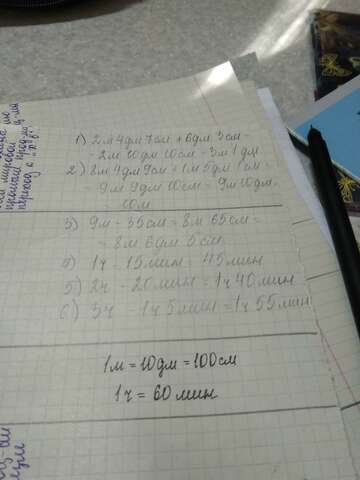 1) 2м 4дм 7см + 6дм 3см =
= 2м 10дм 10см = 3м 1дм
2) 8м 4дм 9см + 1м 5дм 1см =
9м 9дм 10см = 9м 10дм
= 10м
3) 9м - 35см = 8м 65см =
= 8м 6дм 5см
5) 1ч - 15мин = 45мин
5) 2ч - 20мин = 1ч 40мин
6) 3ч - 1ч 5мин = 1ч 55мин
1м = 10дм = 100см
1ч = 60мин